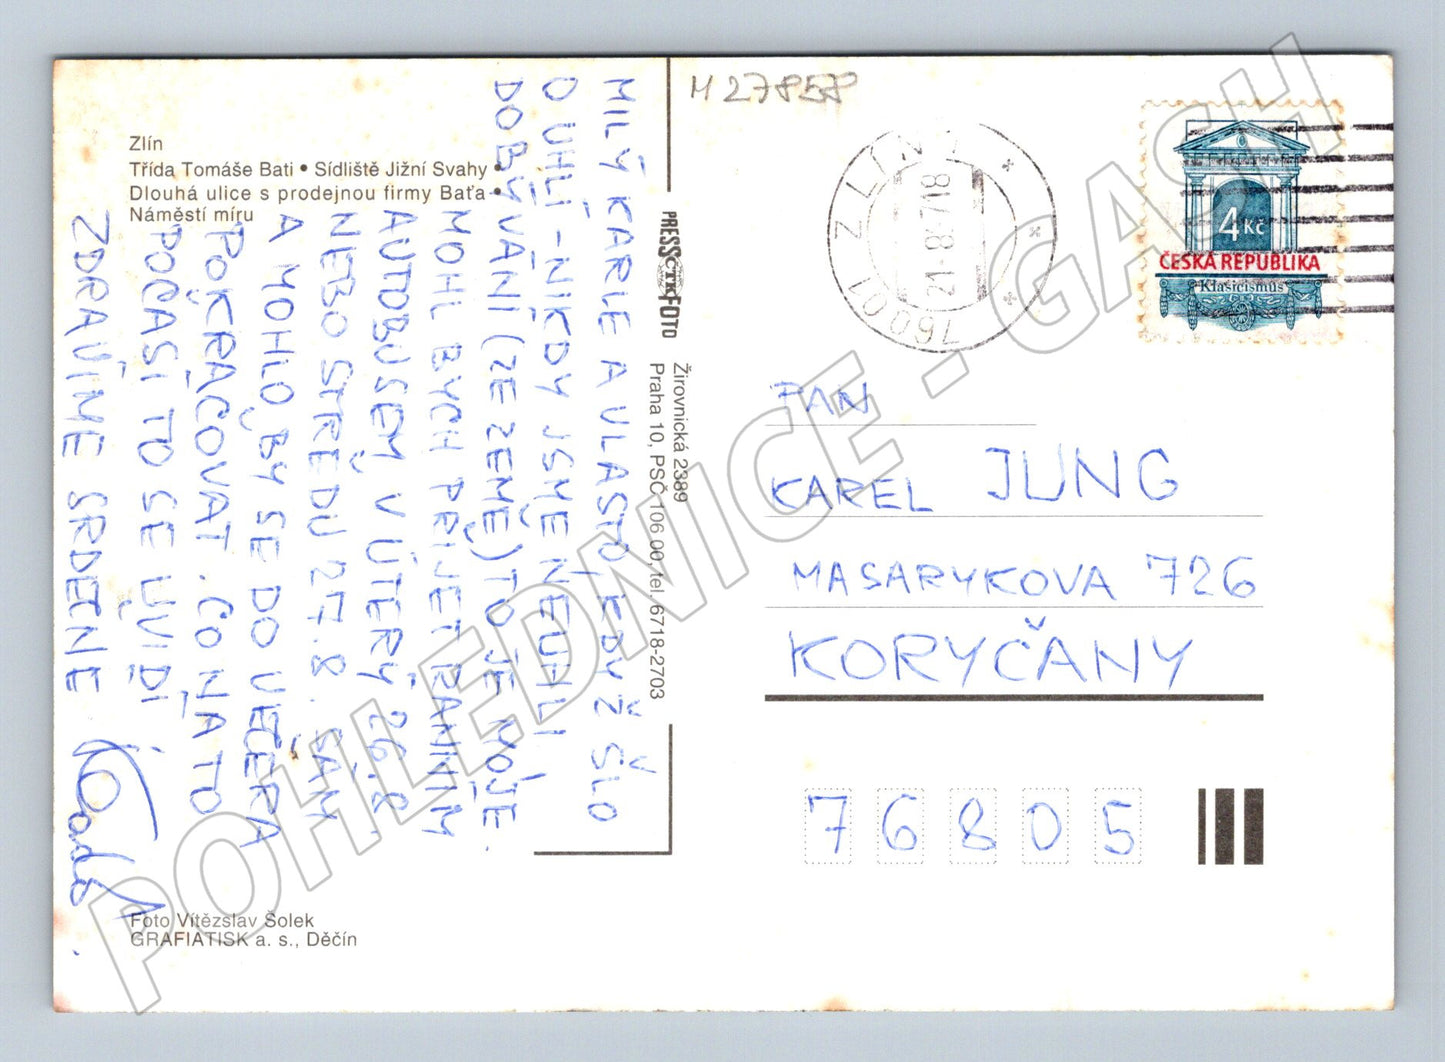 M 27858
Zlín
Třída Tomáše Bati • Sídliště Jižní Svahy •
Dlouhá ulice s prodejnou firmy Baťa •
Náměstí míru
MILÝ KARLE A VLASTO, KDYŽ ŠLO
O UHLÍ - NIKDY JSME NEUHLI
DOBÝVÁNÍ (ZE ZEMĚ) TO JE MOJE.
MOHL BYCH PŘIJET RANNÍM
AUTOBUSEM V ÚTERÝ 26.8.
NEBO STŘEDU 27.8. SÁM
A MOHLO BY SE DO VEČERA
POKRAČOVAT. CO NA TO
POČASÍ TO SE UVIDÍ
ZDRAVÍME SRDEČNĚ
Foto Vítězslav Šolek
GRAFIATISK a. s., Děčín
PRESSCTKFOTO
Žirovnická 2389
Praha 10, PSČ 106 00, tel. 6718-2703
760 01 ZLÍN 1
21-8.97.18
4 Kč
ČESKÁ REPUBLIKA
Klasicismus
PAN
KAREL JUNG
MASARYKOVA 726
KORYČANY
76805
POHLEDNICE - GASH